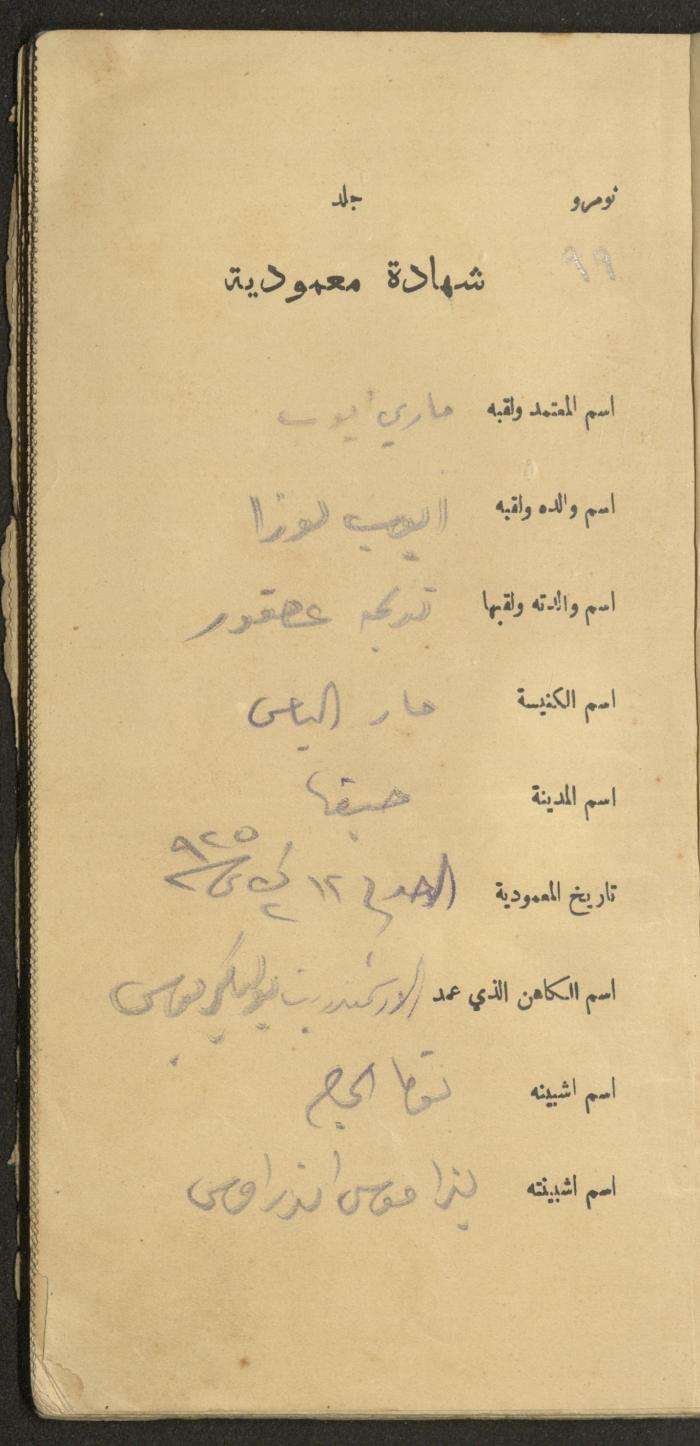 نومرو جلد
٩٩
شهادة معمودية
اسم المعتمد ولقبه ماري ايوب
اسم والده ولقبه ايوب لوزا
اسم والدته ولقبها عصفور
اسم الكنيسة مار الياس
اسم المدينة حيفا
تاريخ المعمودية الاحد في ١٢ ك٢ ٩٢٥
اسم الكاهن الذي عمد الارشمندريت
اسم اشبينه توما
اسم اشبينته موسى اندراوس